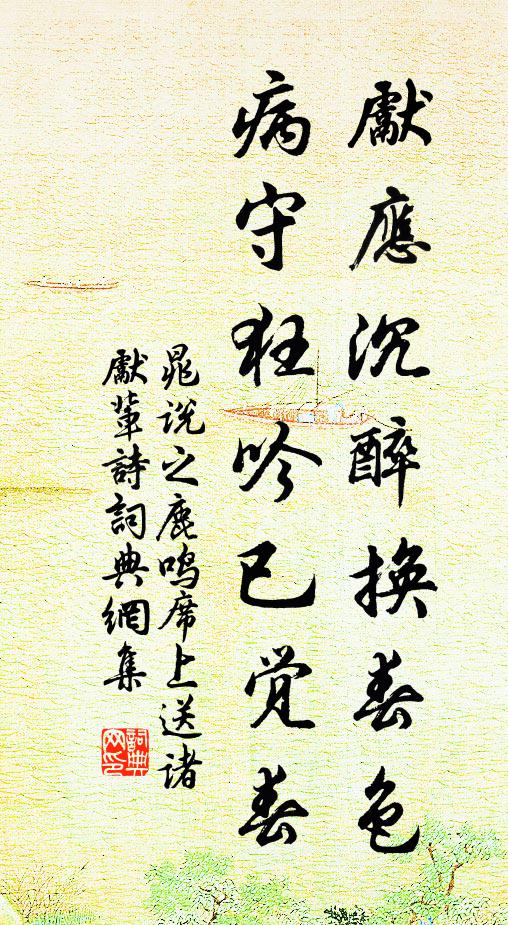 獻應沉醉換春色
病守狂吟已覚春
晁说之鹿鸣席上送诸
獻輩詩詞典網集
詞典网印